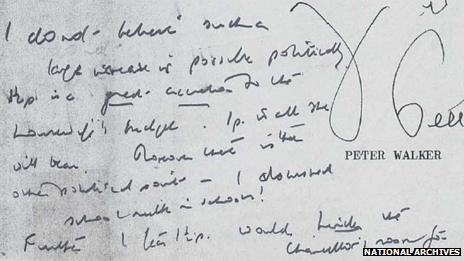 I do not believe such a
large increase is possible politically
is a great addition to the
housewife's budget. 1p. is all she
will bear. Moreover there is the
other political point - I abolished
school milk in schools!
Further I fear would hinder the
Chancellor's room for
PETER WALKER
NATIONAL ARCHIVES